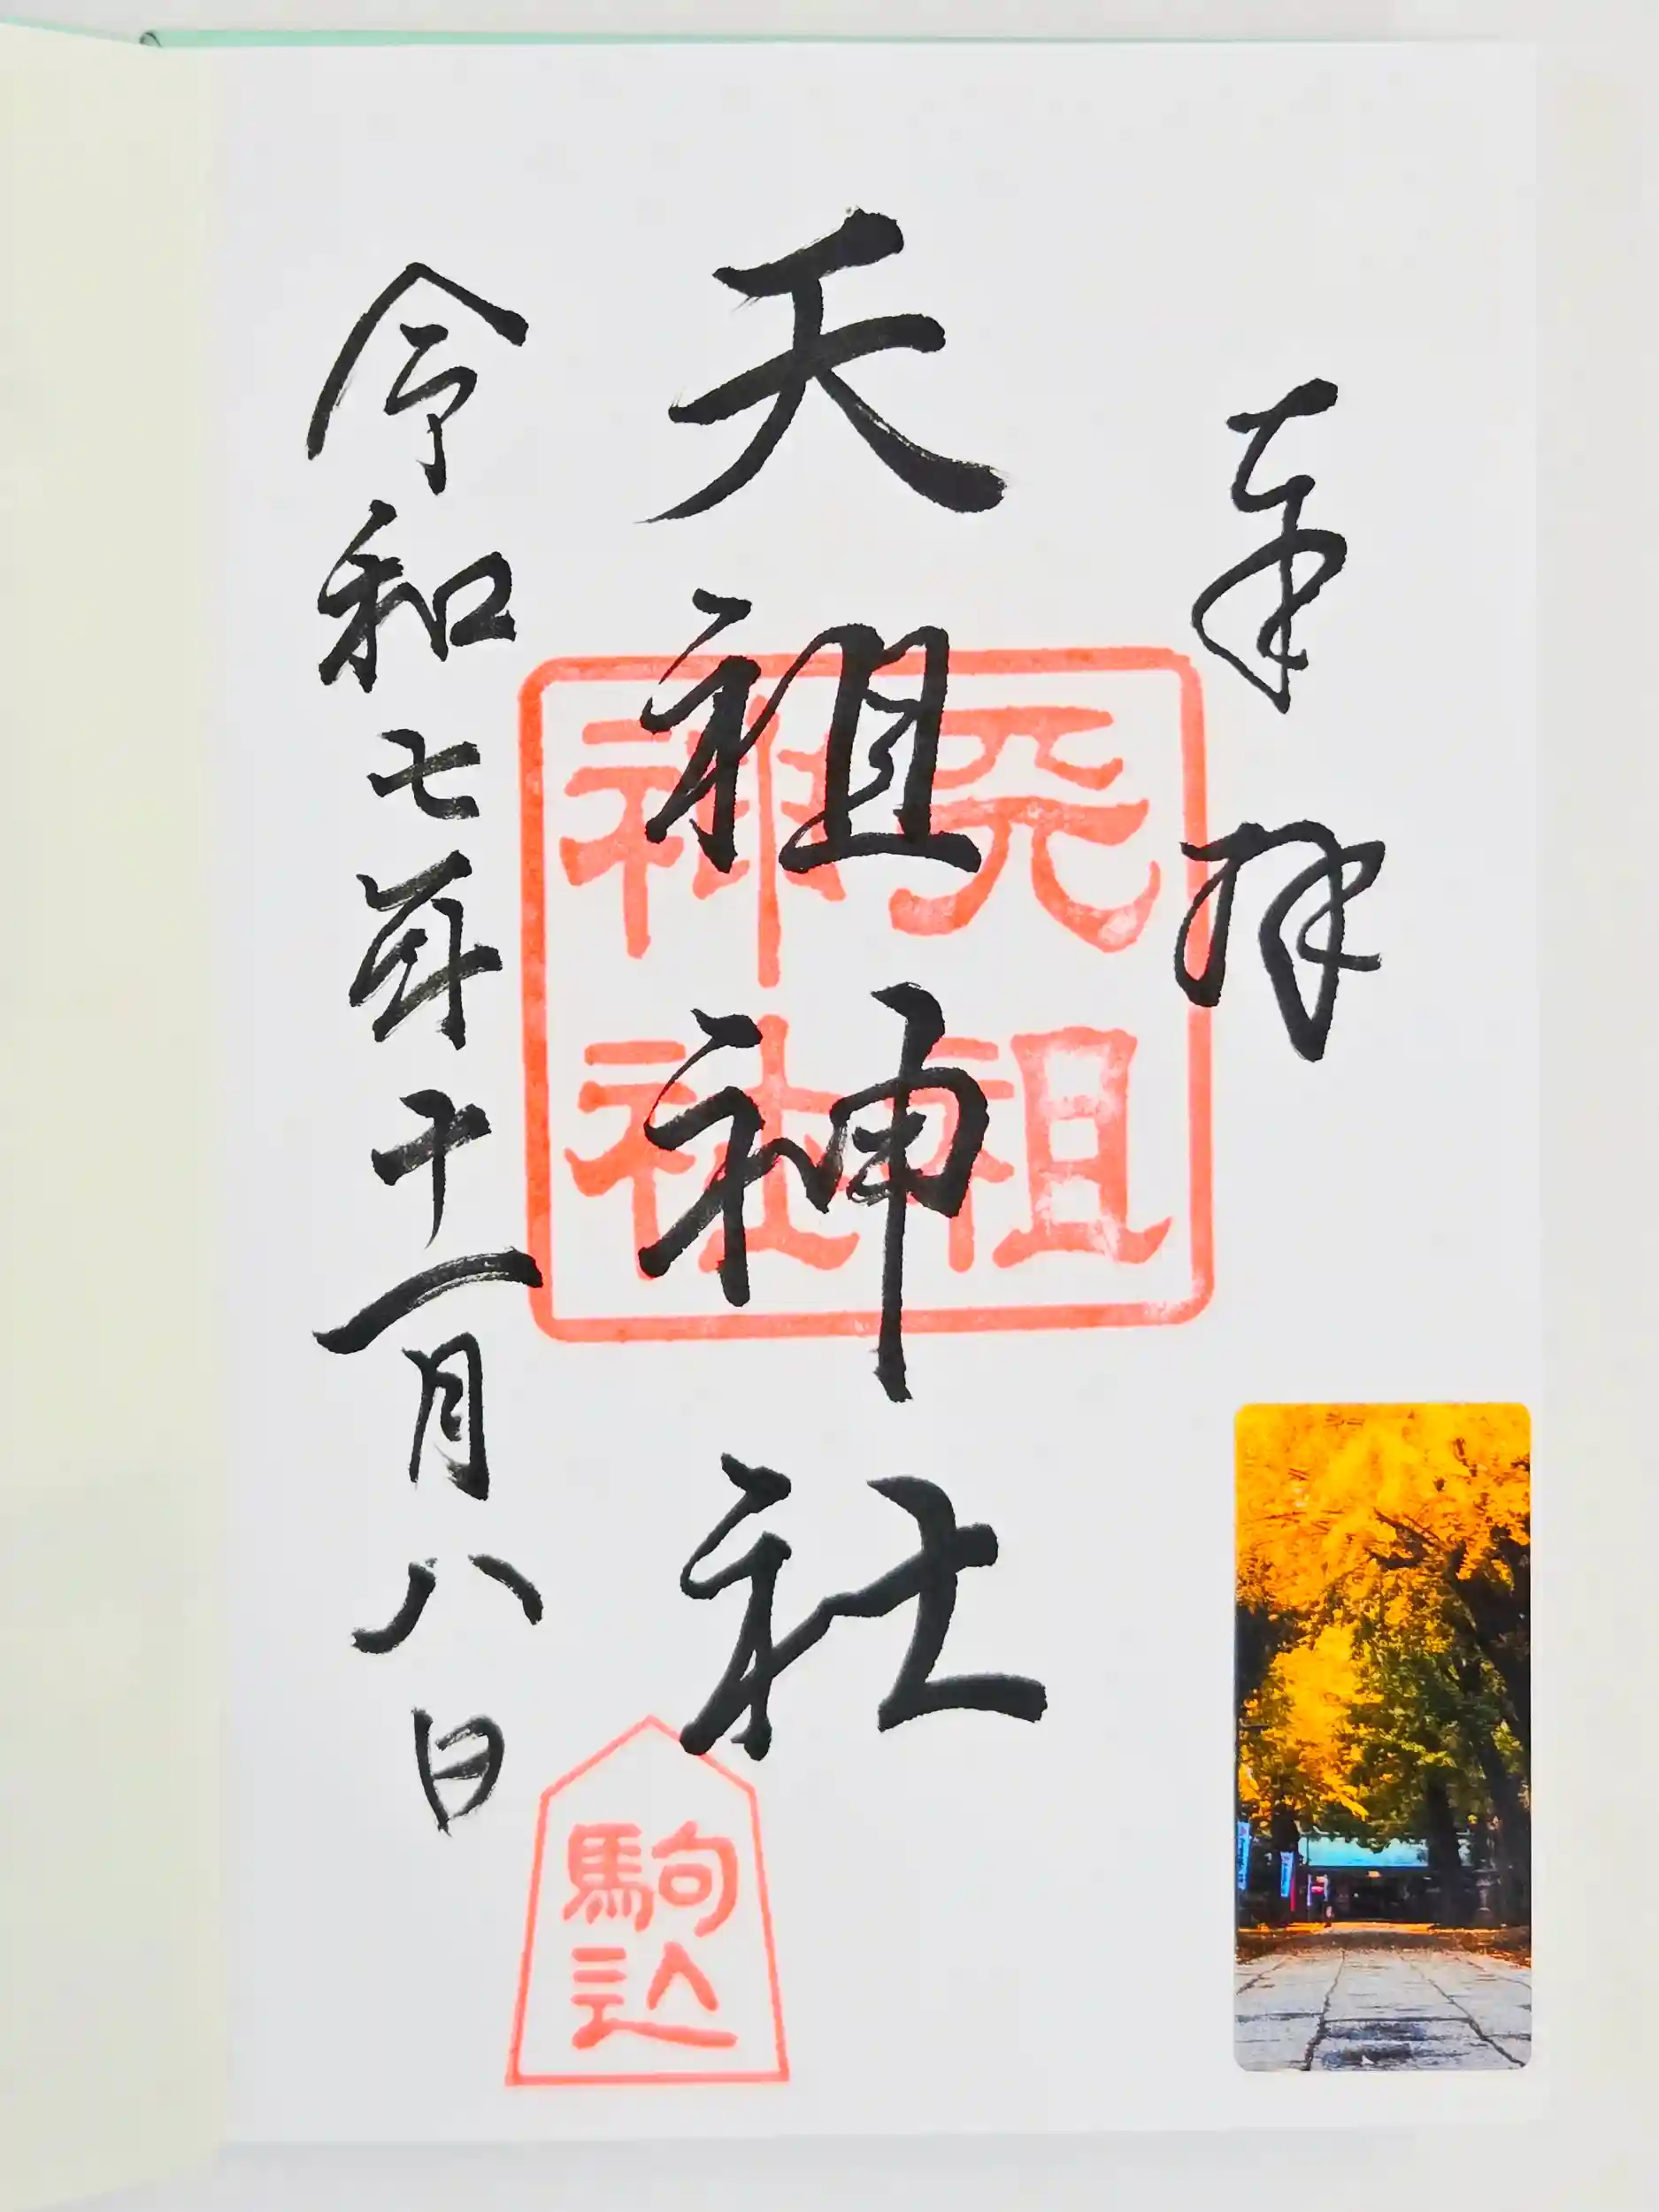 奉拝
天祖神社
天祖
神社
令和七年十一月八日
駒込